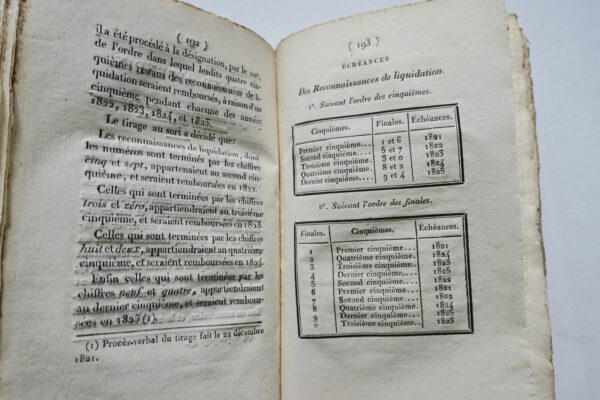 ( 192 )
il a été procédé à la désignation, par le sort,
de l'ordre dans lequel lesdits quatre cin-
quièmes restans des reconnaissances de li-
quidation seraient remboursés, à raison d'un
cinquième pendant chacune des années
1822, 1823, 1824, et 1825.
Le tirage au sort a décidé que:
Les reconnaissances de liquidation, dont
les numéros sont terminés par les chiffres
cinq et sept, appartenaient au second cin-
quième, et seraient remboursées en 1822.
Celles qui sont terminées par les chiffres
trois et zéro, appartiendraient au troisième
cinquième, et seraient remboursées en 1823.
Celles qui sont terminées par les chiffres
huit et deux, appartiendraient au quatrième
cinquième, et seraient remboursées en 1824.
Enfin celles qui sont terminées par les
chiffres neuf et quatre, appartiendraient
au dernier cinquième, et seraient rembour-
sées en 1825 (1).
(1) Procès-verbal du tirage fait le 22 décembre
1821.
( 193 )
ÉCHÉANCES
Des Reconnaissances de liquidation.
1°. Suivant l'ordre des cinquièmes.
Cinquièmes. Finales. Échéances.
Premier cinquième... 1 et 6 1821
Second cinquième.... 5 et 7 1822
Troisième cinquième. 3 et 0 1823
Quatrième cinquième. 8 et 2 1824
Dernier cinquième... 9 et 4 1825
2°. Suivant l'ordre des finales.
Finales. Cinquièmes. Échéances.
1 Premier cinquième... 1821
2 Quatrième cinquième. 1824
3 Troisième cinquième. 1823
4 Dernier cinquième... 1825
5 Second cinquième.... 1822
6 Premier cinquième... 1821
7 Second cinquième.... 1822
8 Quatrième cinquième. 1824
9 Dernier cinquième... 1825
0 Troisième cinquième. 1823